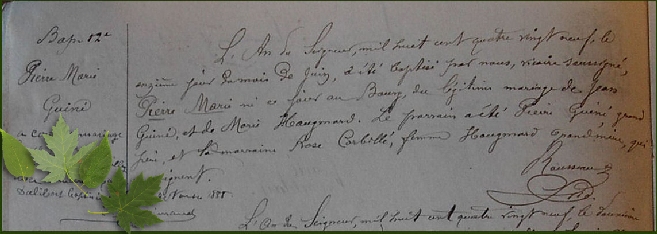 Bapt. 12e
Pierre Marie
Guéné
L'An du Seigneur, mil huit cent quatre vingt neuf, le
onzième jour du mois de Juin, a été baptisé par nous, vicaire soussigné,
Pierre Marie né ce jour au Bourg, du légitime mariage de Jean
Guéné, et de Marie Haugmard. Le parrain a été Pierre Guéné grand
père, et la marraine Rose Corbillé, femme Haugmard grand'mère, qui
signent.
L'An du Seigneur, mil huit cent quatre vingt neuf, le douzième